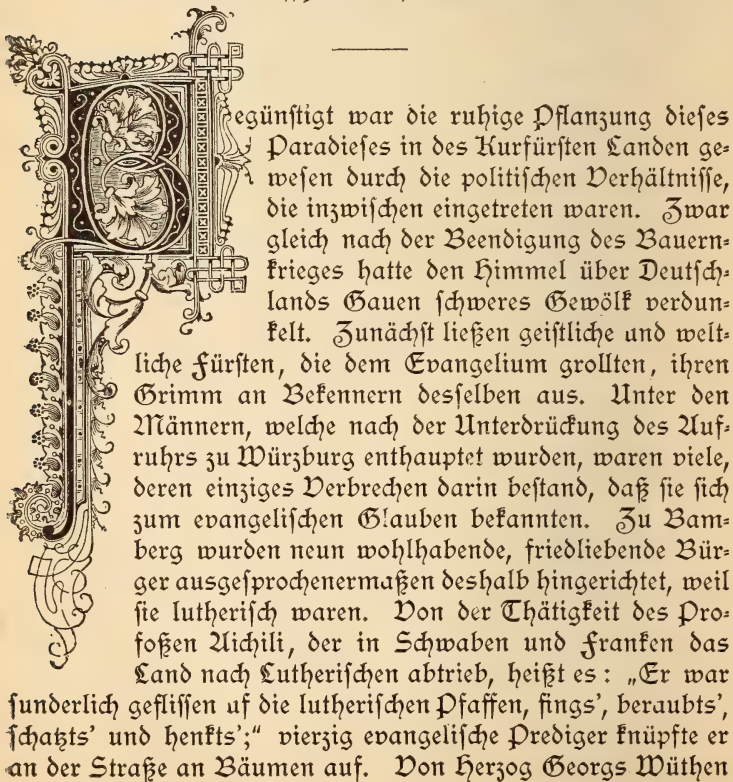 Begünstigt war die ruhige Pflanzung dieses
Paradieses in des Kurfürsten Landen ge-
wesen durch die politischen Verhältnisse,
die inzwischen eingetreten waren. Zwar
gleich nach der Beendigung des Bauern-
krieges hatte den Himmel über Deutsch-
lands Gauen schweres Gewölk verdun-
kelt. Zunächst ließen geistliche und welt-
liche Fürsten, die dem Evangelium grollten, ihren
Grimm an Bekennern desselben aus. Unter den
Männern, welche nach der Unterdrückung des Auf-
ruhrs zu Würzburg enthauptet wurden, waren viele,
deren einziges Verbrechen darin bestand, daß sie sich
zum evangelischen Glauben bekannten. Zu Bam-
berg wurden neun wohlhabende, friedliebende Bür-
ger ausgesprochenermaßen deshalb hingerichtet, weil
sie lutherisch waren. Von der Thätigkeit des Pro-
foßen Aichili, der in Schwaben und Franken das
Land nach Lutherischen abtrieb, heißt es: „Er war
sunderlich geflissen uf die lutherischen Pfaffen, fings', beraubts',
schatzts' und henkts';“ vierzig evangelische Prediger knüpfte er
an der Straße an Bäumen auf. Von Herzog Georgs Wüthen